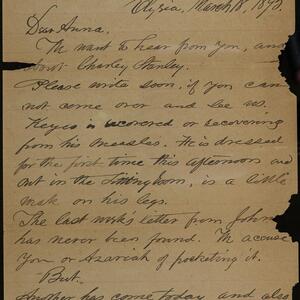 Elyria, March 18, 1893.
Dear Anna,
We want to hear from you, and
about Charley Stanley.
Please write soon, if you can
not come over and see us.
Keyes is recovered or recovering
from his measles. He is dressed
for the first time this afternoon and
out in the Sitting room, is a little
weak on his legs.
The last week's letter from John
has never been found. We accuse
you or Azariah of pocketing it.
But
Another has come today and also